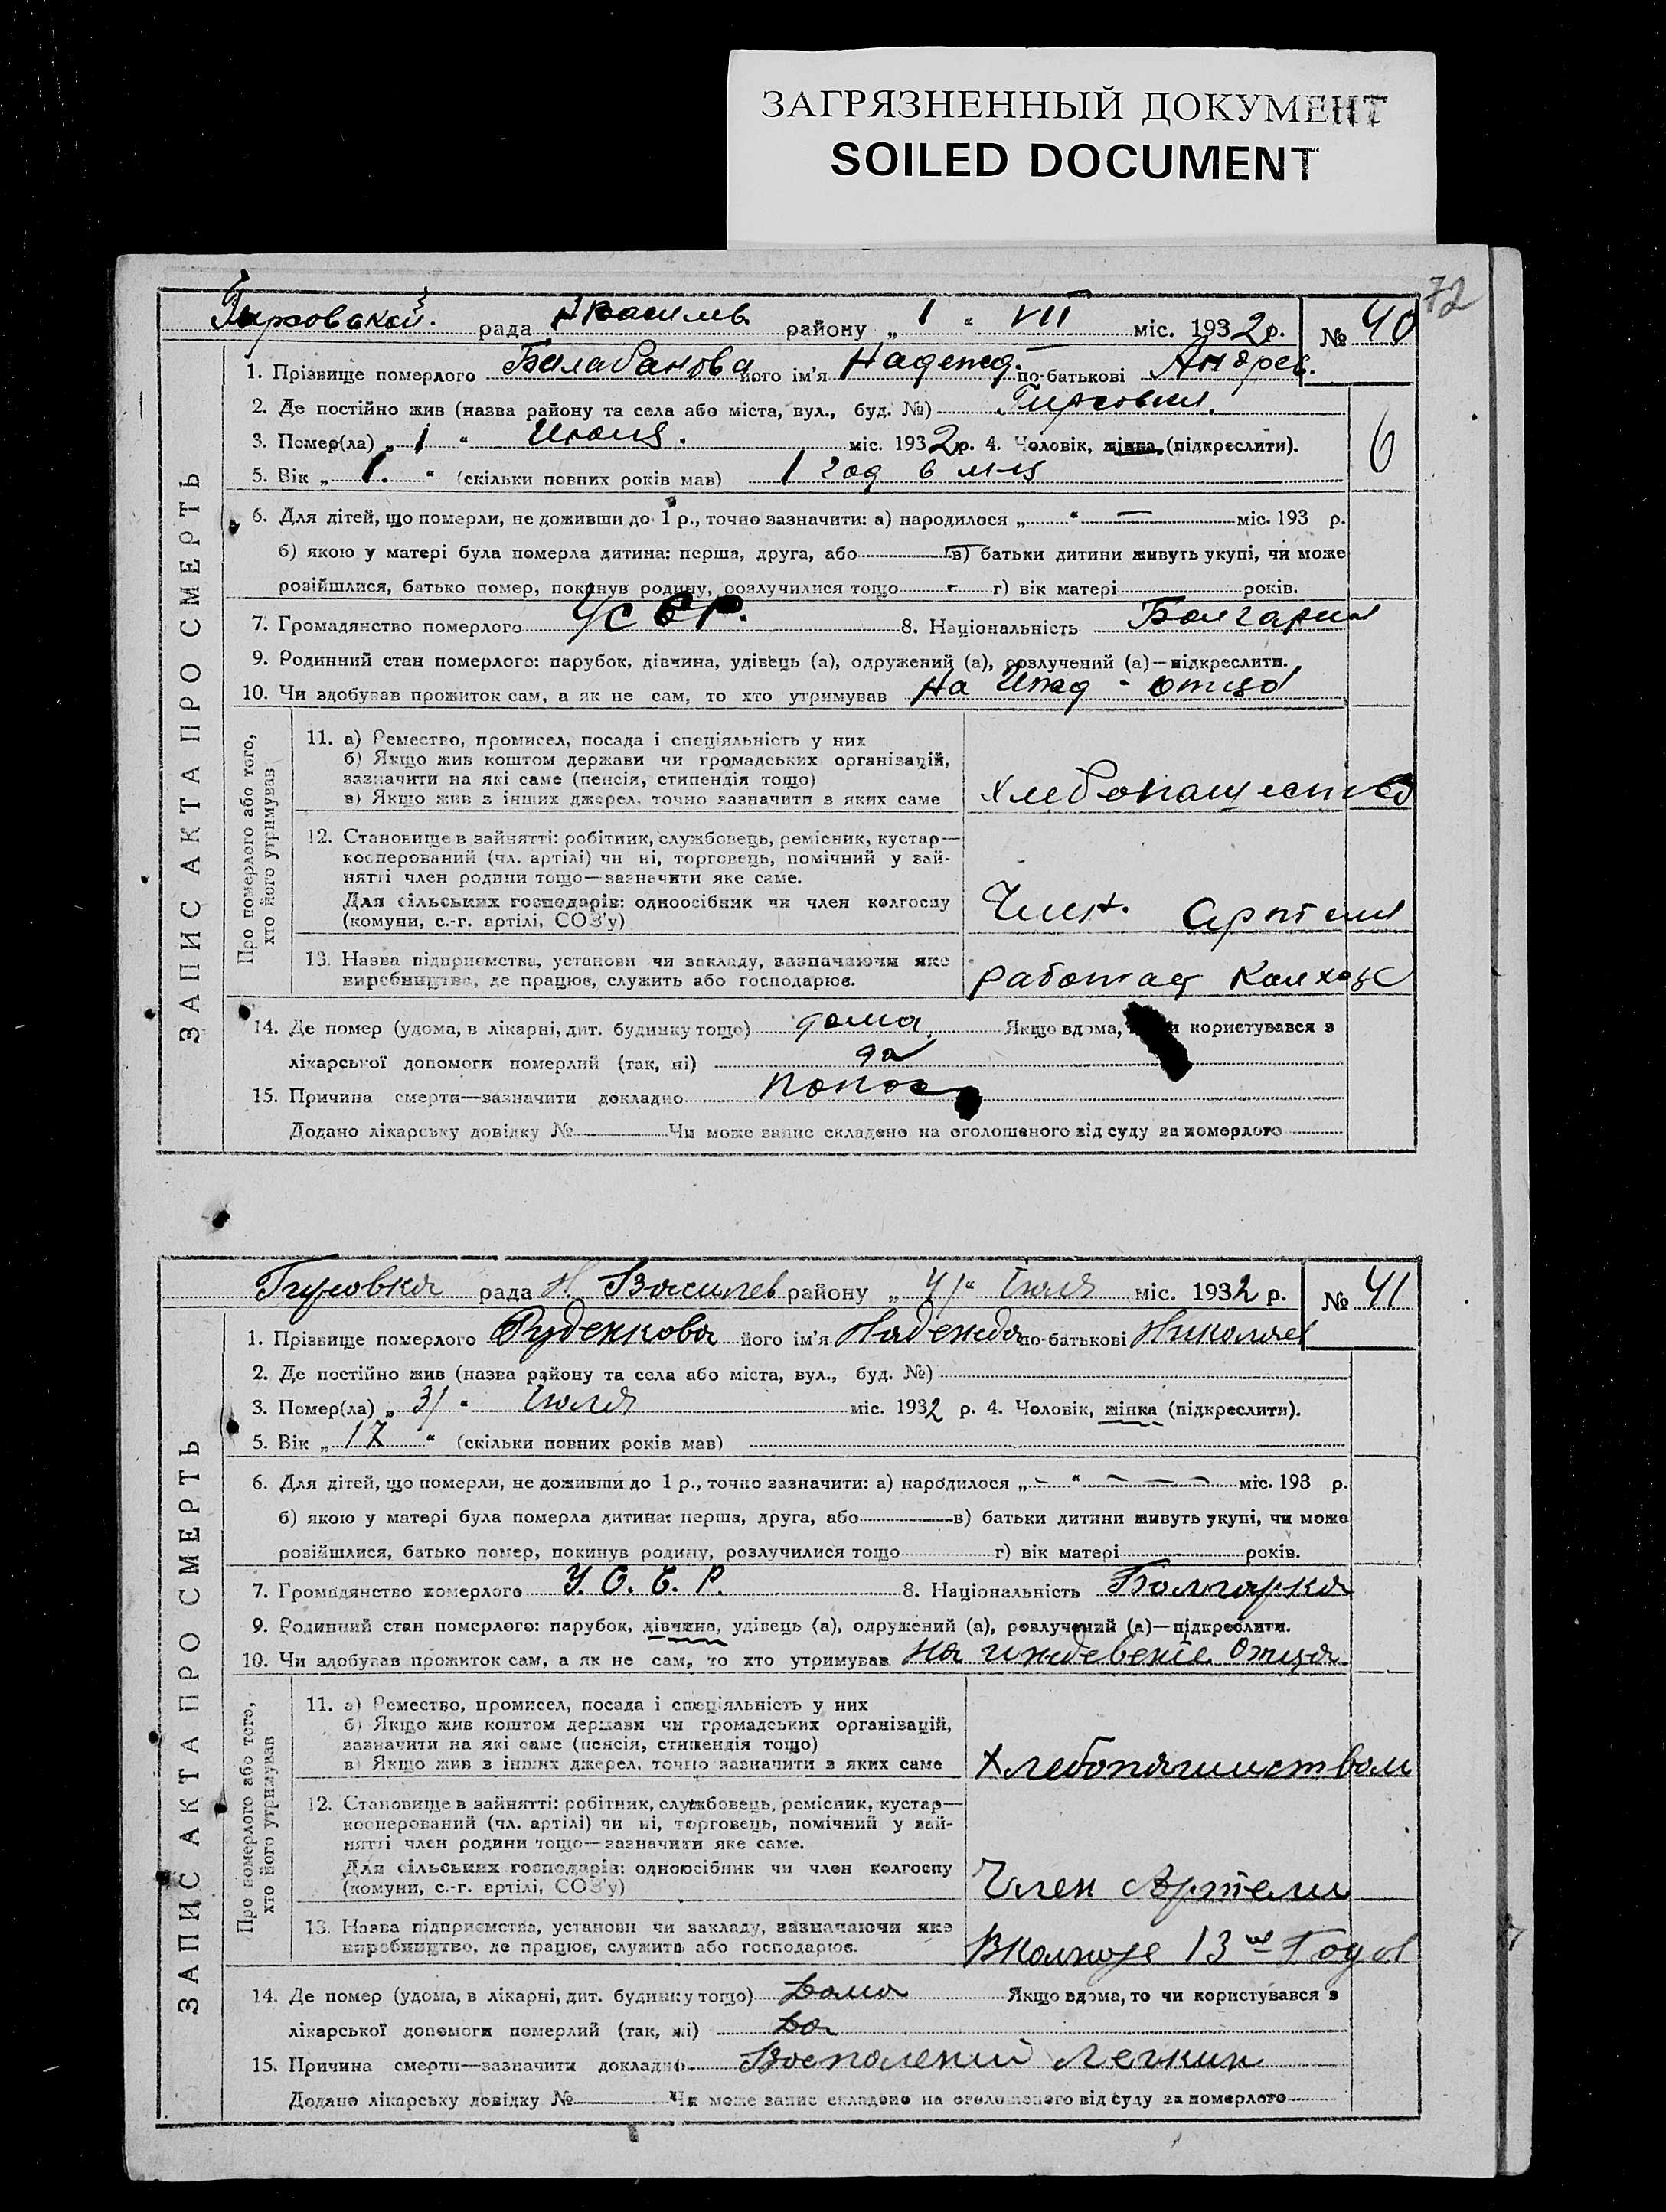 ЗАГРЯЗНЕННЫЙ ДОКУМЕНТ
SOILED DOCUMENT
72
Гирсовской рада Нвасилев району „ 1 “ VII міс. 1932 р. № 40
1. Прізвище померлого Балабанова його ім'я Надежд. по-батькові Андрев.
2. Де постійно жив (назва району та села або міста, вул., буд. №) Гирсовки.
3. Помер(ла) „ 1 “ Июня. міс. 1932 р. 4. Чоловік, жінка, (підкреслити).
6
5. Вік „ 1. “ (скільки повних років мав) 1 год 6 м-ц
6. Для дітей, що померли, не доживши до 1 р., точно зазначити: а) народилося „ “ — міс. 193 р.
б) якою у матері була померла дитина: перша, друга, або в) батьки дитини живуть укупі, чи може
розійшлися, батько помер, покинув родину, розлучилися тощо г) вік матері років.
7. Громадянство померлого УССР. 8. Національність Болгарин
9. Родинний стан померлого: парубок, дівчина, удівець (а), одружений (а), розлучений (а)—підкреслити.
10. Чи здобував прожиток сам, а як не сам, то хто утримував На Ижд - отца
ЗАПИС АКТА ПРО СМЕРТЬ
Про померлого або того, хто його утримував
11. а) Ремество, промисел, посада і спеціяльність у них
б) Якщо жив коштом держави чи громадських організацій,
зазначити на які саме (пенсія, стипендія тощо)
в) Якщо жив з інших джерел, точно зазначити з яких саме
Хлебопашество
12. Становище в зайнятті: робітник, службовець, ремісник, кустар—
косперований (чл. артілі) чи ні, торговець, помічний у зай-
нятті член родини тощо—зазначити яке саме.
Для сільських господарів: одноосібник чи член колгоспу
(комуни, с.-г. артілі, СОЗ'у)
Член. Артели
13. Назва підприємства, установи чи закладу, зазначаючи яке
виробництво, де працює, служить або господарює.
работац Колхозе
14. Де помер (удома, в лікарні, дит. будинку тощо) дома. Якщо вдома, користувався з
лікарської допомоги померлий (так, ні) да
15. Причина смерти—зазначити докладно понос
Додано лікарську довідку № Чи може запис складено на оголошеного від суду за померлого
Гирсовка рада Н. Василев району „ 4/ “ Июля міс. 1932 р. № 41
1. Прізвище померлого Руденкова його ім'я Надежда по-батькові Николаев
2. Де постійно жив (назва району та села або міста, вул., буд. №)
3. Помер(ла) „ 3/ “ Июля міс. 1932 р. 4. Чоловік, жінка (підкреслити).
5. Вік „ 17 “ (скільки повних років мав)
6. Для дітей, що померли, не доживши до 1 р., точно зазначити: а) народилося „ — “ — — — міс. 193 р.
б) якою у матері була померла дитина: перша, друга, або в) батьки дитини живуть укупі, чи може
розійшлися, батько помер, покинув родину, розлучилися тощо г) вік матері років.
7. Громадянство померлого У. С. С. Р. 8. Національність Болгарка
9. Родинний стан померлого: парубок, дівчина, удівець (а), одружений (а), розлучений (а)—підкреслити.
10. Чи здобував прожиток сам, а як не сам, то хто утримував На иждевеніе Отца
ЗАПИС АКТА ПРО СМЕРТЬ
Про померлого або того, хто його утримував
11. а) Ремество, промисел, посада і спеціяльність у них
б) Якщо жив коштом держави чи громадських організацій,
зазначити на які саме (пенсія, стипендія тощо)
в) Якщо жив з інших джерел, точно зазначити з яких саме
Хлебопашиством
12. Становище в зайнятті: робітник, службовець, ремісник, кустар—
косперований (чл. артілі) чи ні, торговець, помічний у зай-
нятті член родини тощо—зазначити яке саме.
Для сільських господарів: одноосібник чи член колгоспу
(комуни, с.-г. артілі, СОЗ'у)
Член Артели
13. Назва підприємства, установи чи закладу, зазначаючи яке
виробництво, де працює, служить або господарює.
Вколхозе 13 Года
14. Де помер (удома, в лікарні, дит. будинку тощо) Дома Якщо вдома, то чи користувався з
лікарської допомоги померлий (так, ні) Да
15. Причина смерти—зазначити докладно. Воспалений Легких
Додано лікарську довідку № Чи може запис складено на оголошеного від суду за померлого